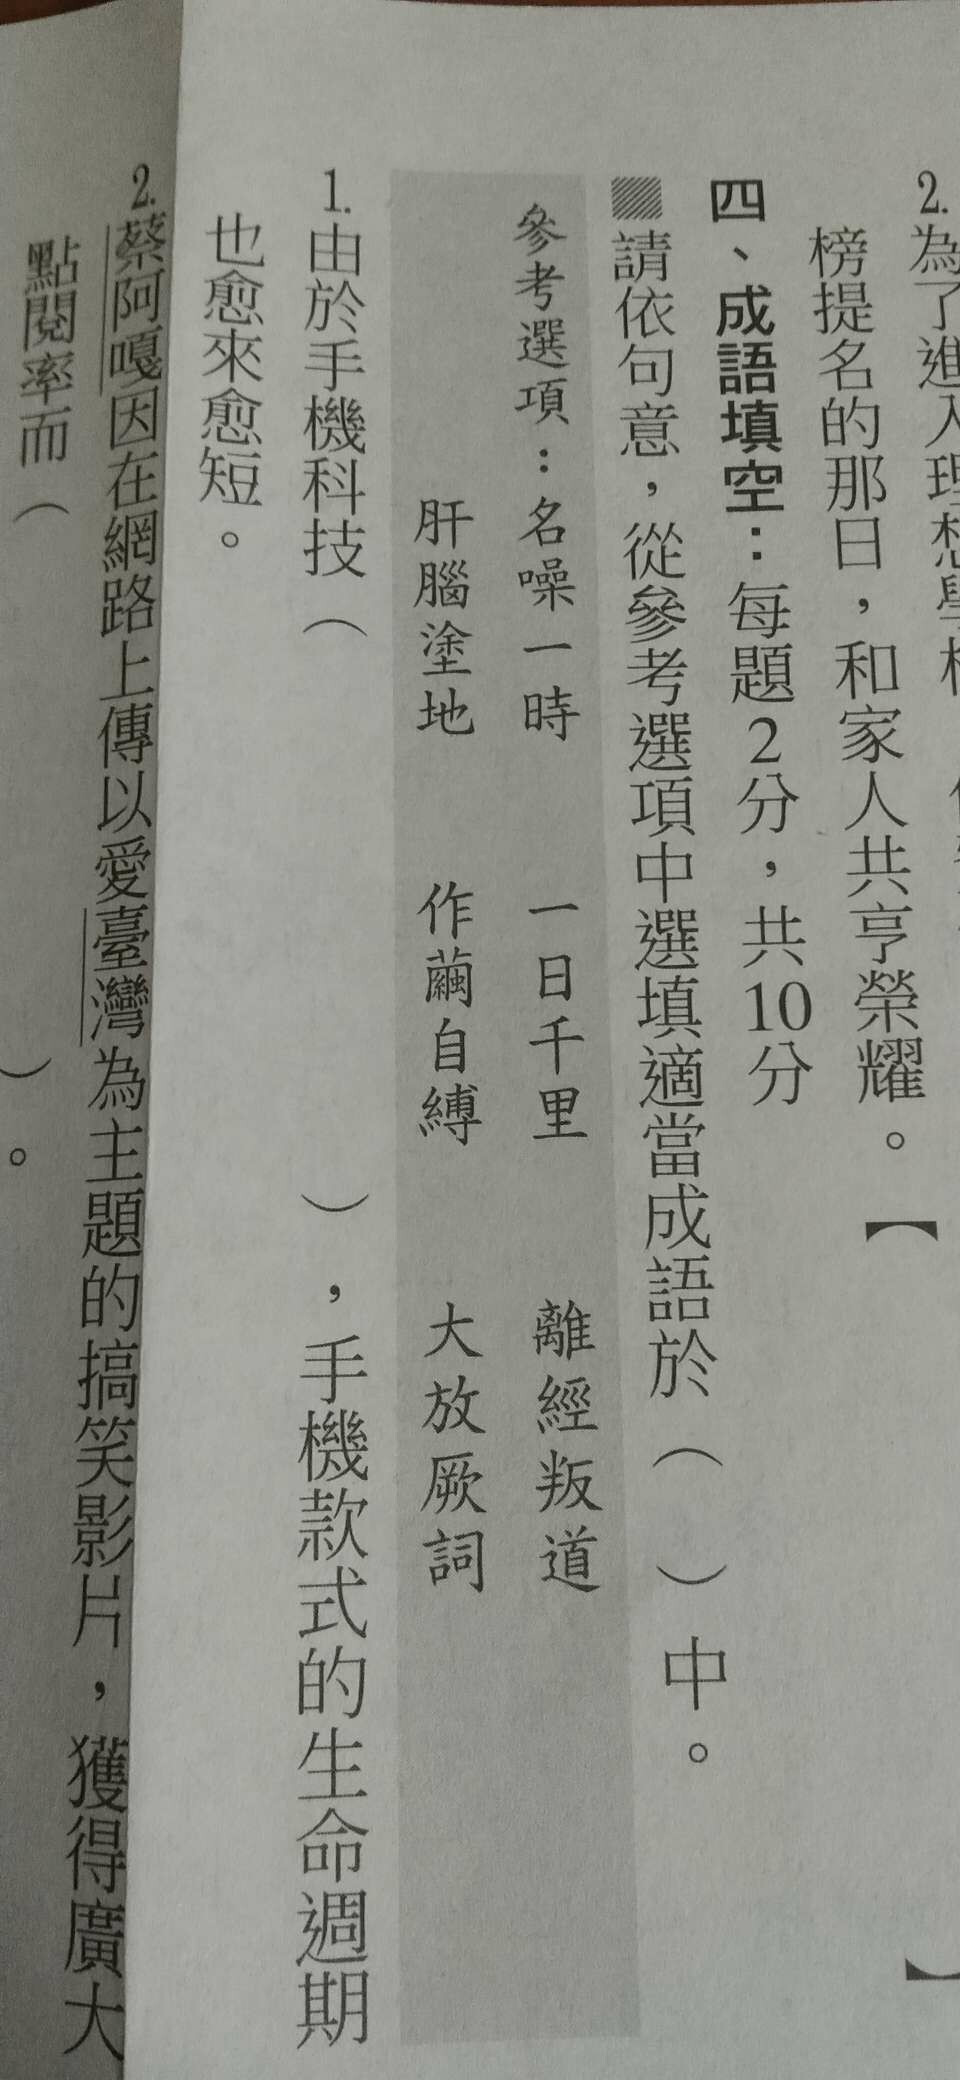 2.為了進入理想學
榜提名的那日，和家人共亨榮耀。【　】
四、成語填空：每題2分，共10分
請依句意，從參考選項中選填適當成語於（　）中。
參考選項：名噪一時　一日千里　離經叛道
肝腦塗地　作繭自縛　大放厥詞
1.由於手機科技（　）， 手機款式的生命週期
也愈來愈短。
2.蔡阿嘎因在網路上傳以愛臺灣為主題的搞笑影片，獲得廣大
點閱率而（　）。